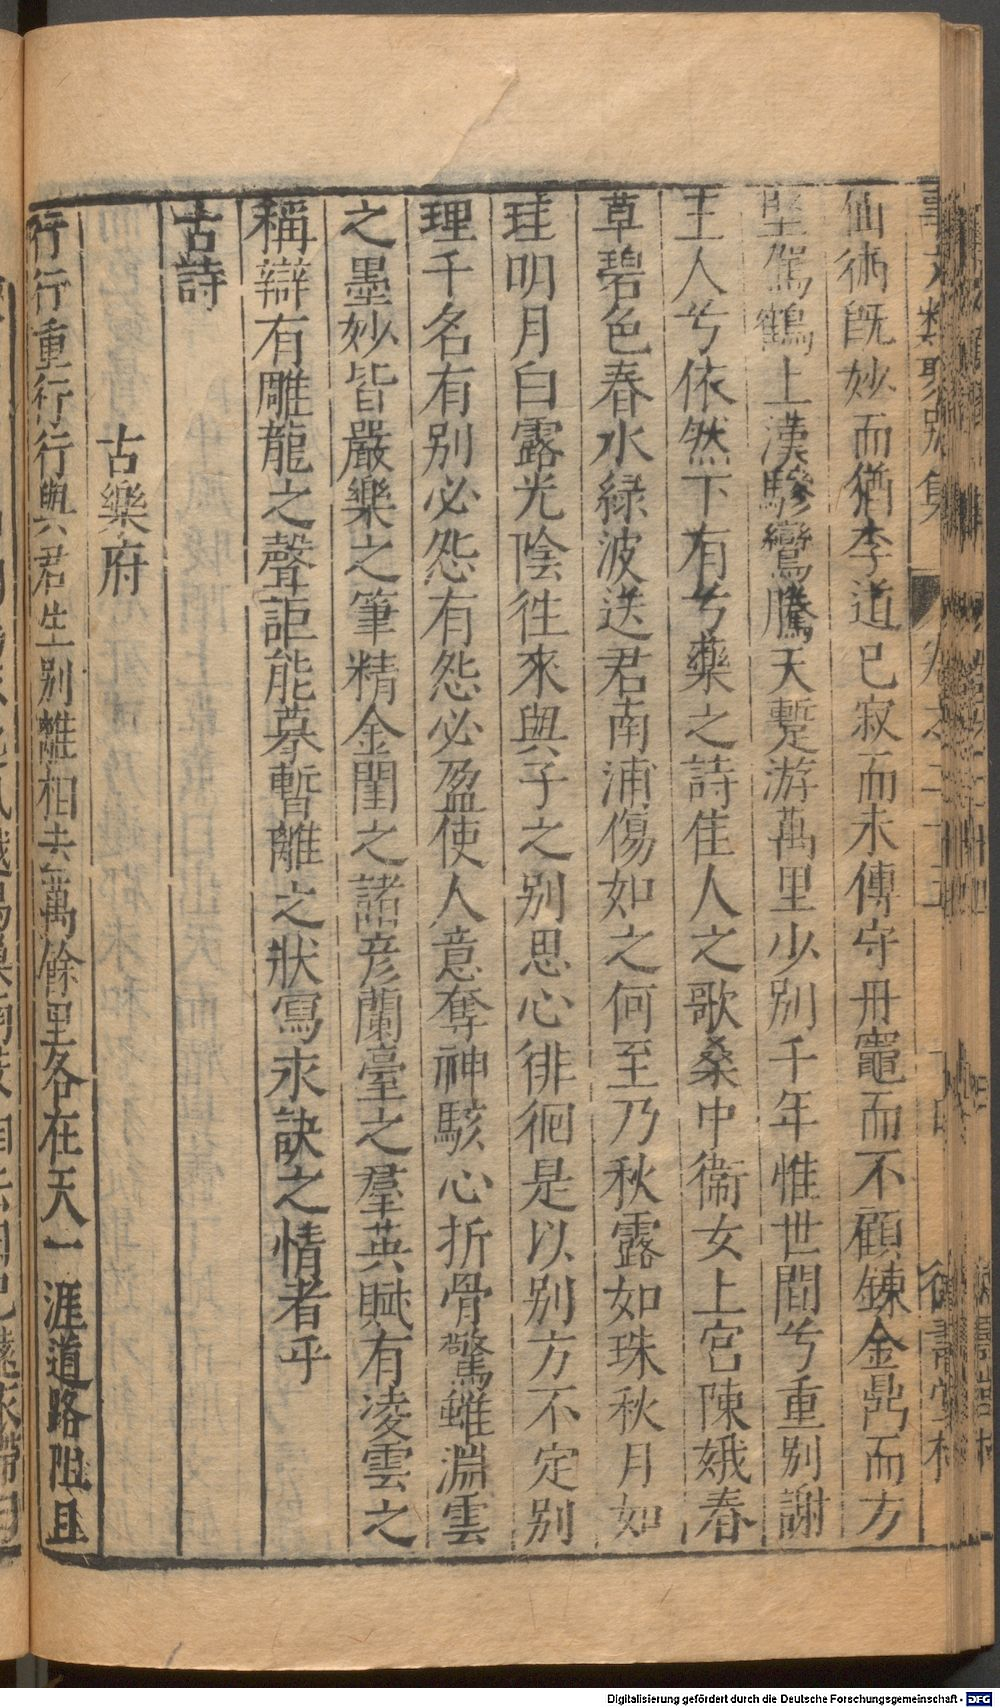 事文類聚別集 卷之二十五 德壽堂梓
仙術既妙而猶李道已寂而未傳守丹竈而不顧鍊金鼎而方
堅駕鶴上漢驂鸞騰天蹔游萬里少别千年惟世間兮重别謝
主人兮依然下有兮藥之詩隹人之歌桑中衞女上宫陳娥春
草碧色春水綠波送君南浦傷如之何至乃秋露如珠秋月如
珪明月白露光陰徃來與子之别思心徘徊是以别方不定别
理千名有别必怨有怨必盈使人意奪神駭心折骨驚雖淵雲
之墨妙皆嚴樂之筆精金閨之諸彦蘭臺之羣英賦有凌雲之
稱辯有雕龍之聲詎能摹暫離之狀寫永訣之情者乎
古詩
古樂府
行行重行行與君生别離相去萬餘里各在天一涯道路阻且
Digitalisierung gefördert durch die Deutsche Forschungsgemeinschaft - DFG